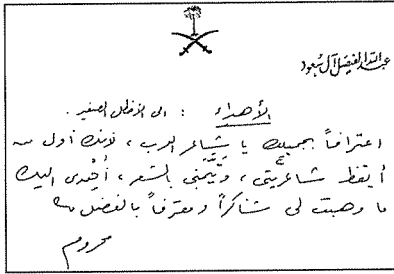 عبد الله الفيصل آل سعود
الأهداء : الى الأخطل الصغير .
اعترافاً بجميلك يا شاعر العرب ، لأنك أول من
أيقظ شاعريتي ، وتيّمني بالشعر ، أُهدي اليك
ما وهبت لي شاكراً ومعترفاً بالفضل
محروم